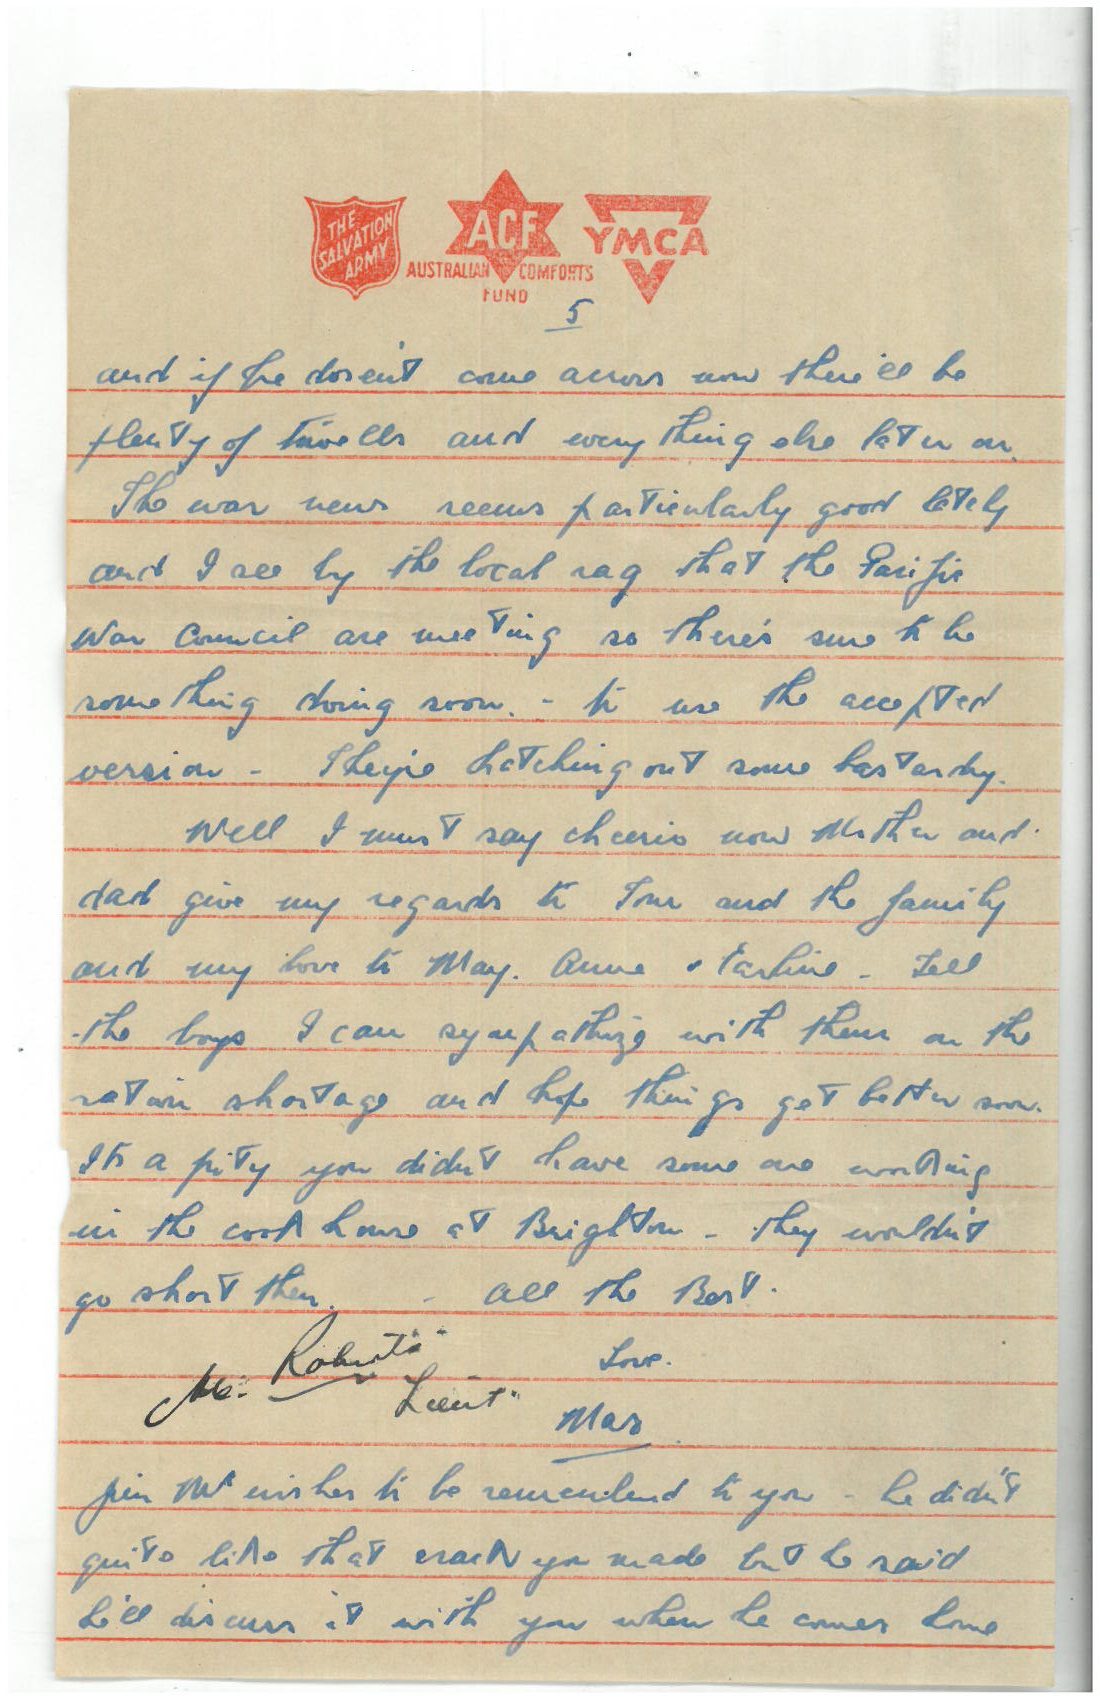 THE
SALVATION
ARMY
ACF
AUSTRALIAN COMFORTS
FUND
YMCA
5
and if he dosen't come across now there'll be
plenty of and everything else later on.
The war news seems particularly good lately
and I see by the local rag that the Pacific
War Council are meeting so there's sure to be
something doing soon. - to use the accepted
version - They're hatching out some bastardry.
Well I must say cheerio now Mother and
dad give my regards to Tom and the family
and my love to May. Anne & - Tell
the boys I can sympathize with them on the
ration shortage and hope things get better soon.
Its a pity you didn't have some one working
in the cook house at Brighton - they wouldn't
go short then. - All the Best.
Love.
Roberts
Lieut
Mas
Jim Mc wishes to be remembered to you - he didn't
quite like that crack you made but he said
he'll discuss it with you when he comes home